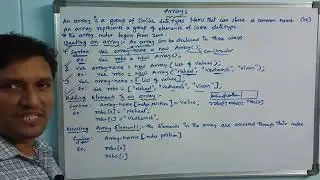 Arrays
An array is a group of similar data types items that can share a common name (or)
An array represents a group of elements of same datatype
* the array index begins from zero.
Creating an array: An array can be declared in three ways
Syntax: var array-name = new Array();
Ex: var robo = new Array();
var array-name = new Array (List of values);
Ex: var robo = new Array ("Mahad", "Vedhansh", "Vivan");
Syntax: var array-name = [List of values];
Ex: var robo = ["Mahad", "Vedhansh", "Vivan"];
Adding Elements in an array:-
Syntax: array-name [index position] = Value;
Ex: robo[0] = "Mahad",
robo[1] = "Vedhansh",
Accessing Array Elements: the Elements in the array are accessed through their index
Syntax: Array-name [index position]
Ex: robo[0]
robo[1]